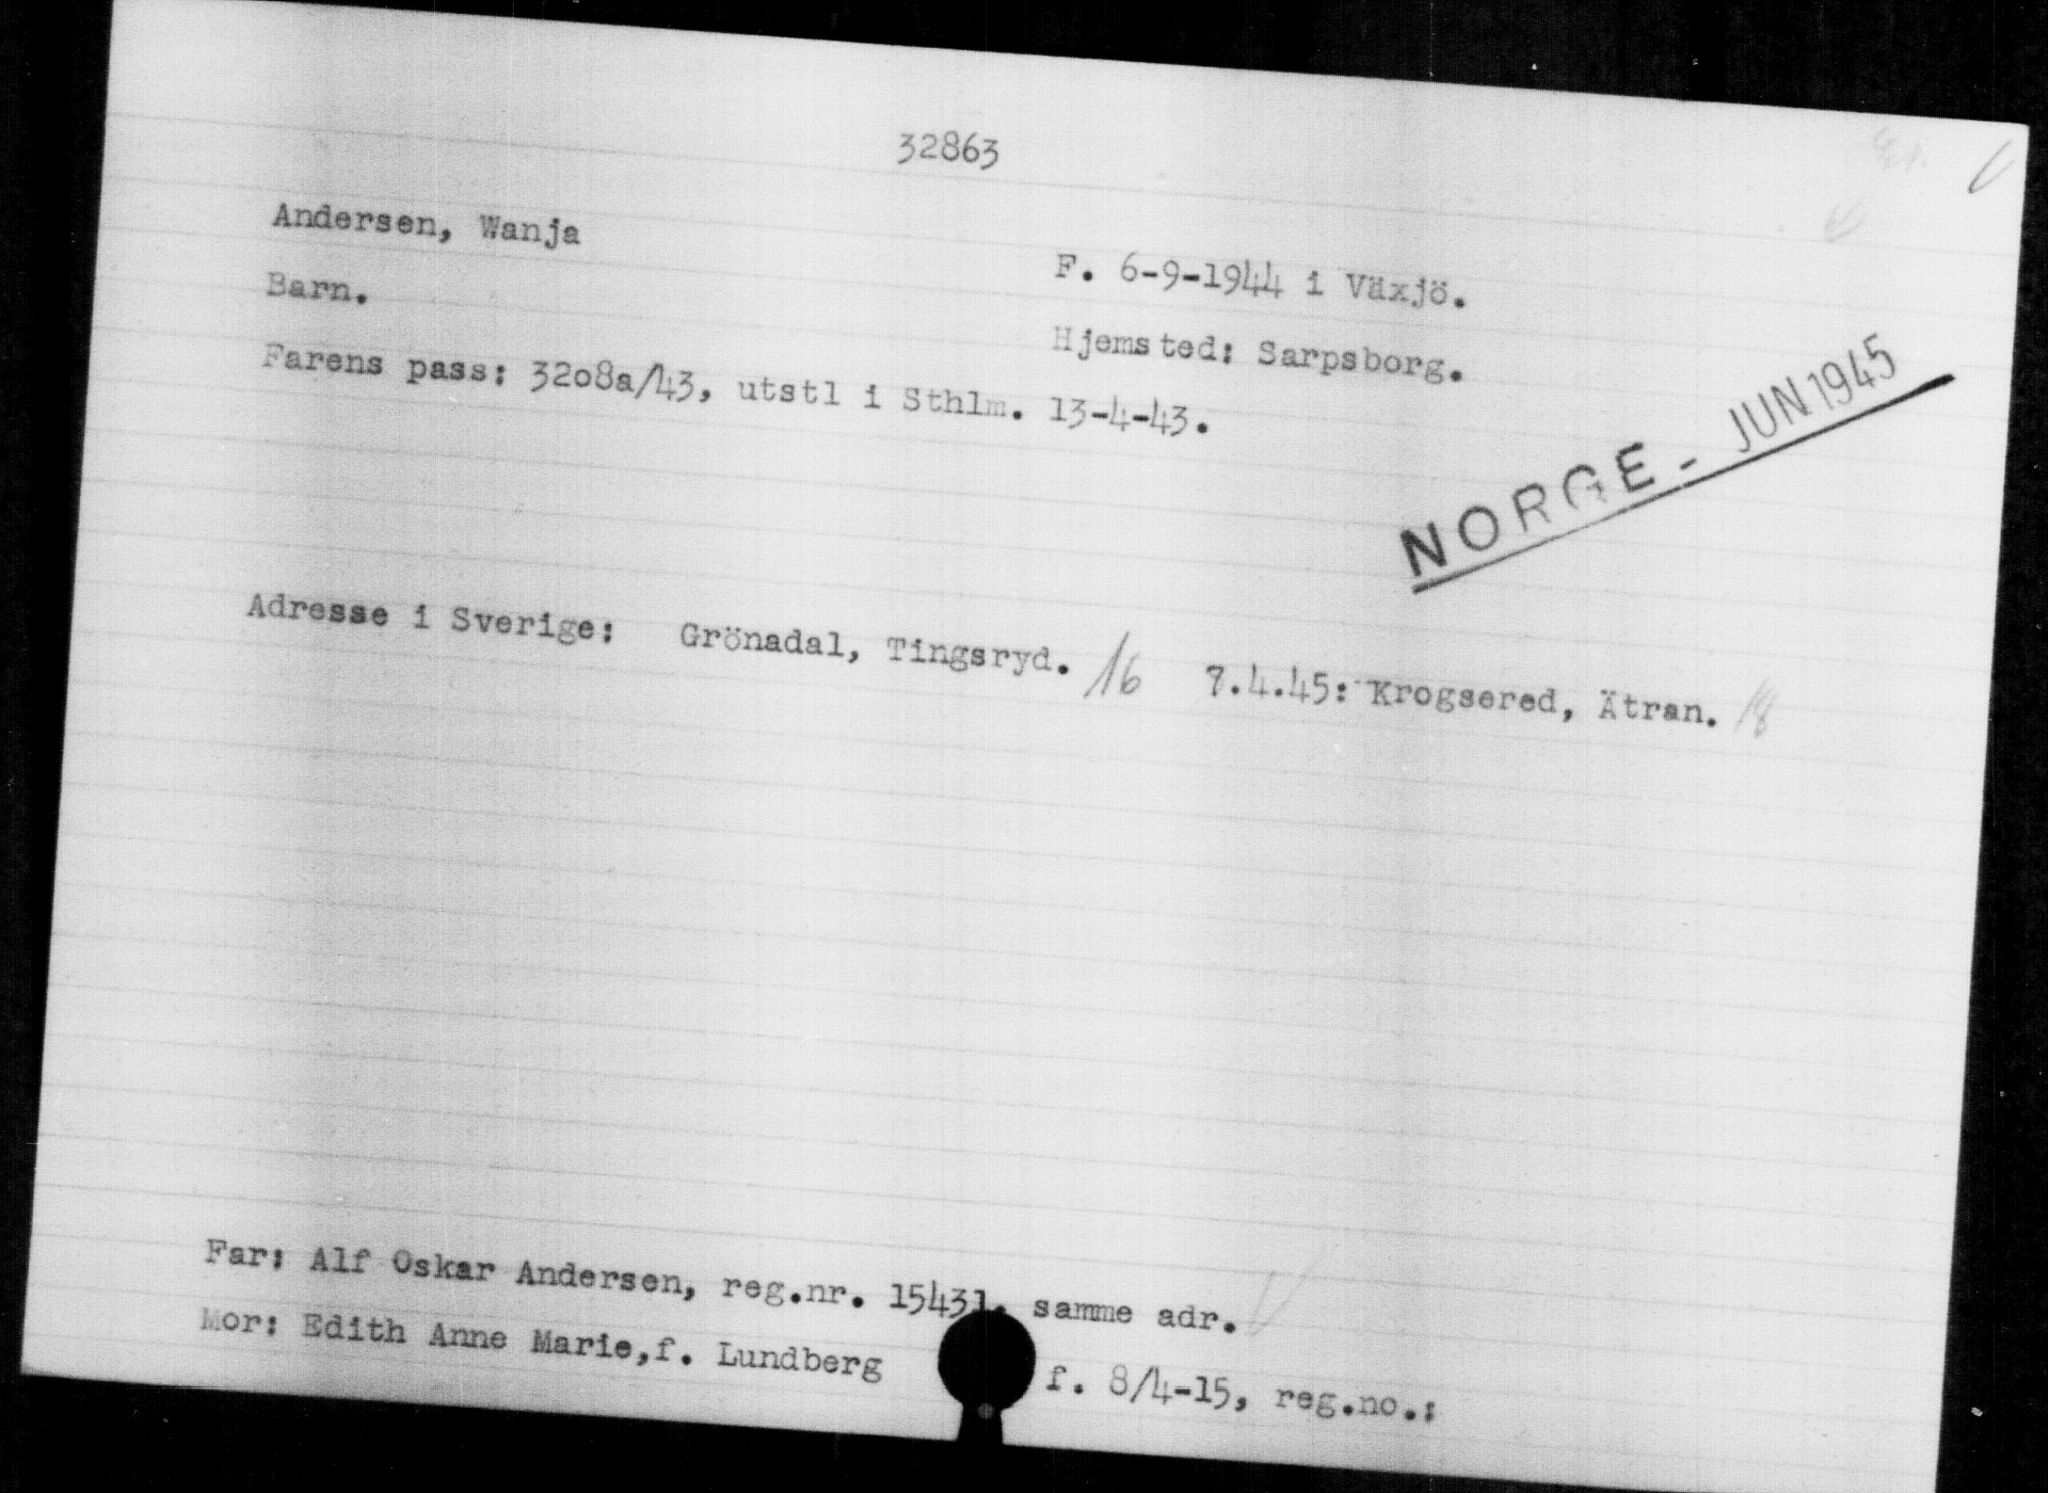 32863
Andersen, Wanja
F. 6-9-1944 i Växjö.
Barn.
Hjemsted: Sarpsborg.
Farens pass: 3208a/43, utstl i Sthlm. 13-4-43.
NORGE - JUN 1945
Adresse i Sverige: Grönadal, Tingsryd. /16 7.4.45: Krogsered, Ätran. /18
Far: Alf Oskar Andersen, reg.nr. 15431. samme adr.
Mor: Edith Anne Marie,f. Lundberg f. 8/4-15, reg.no.: